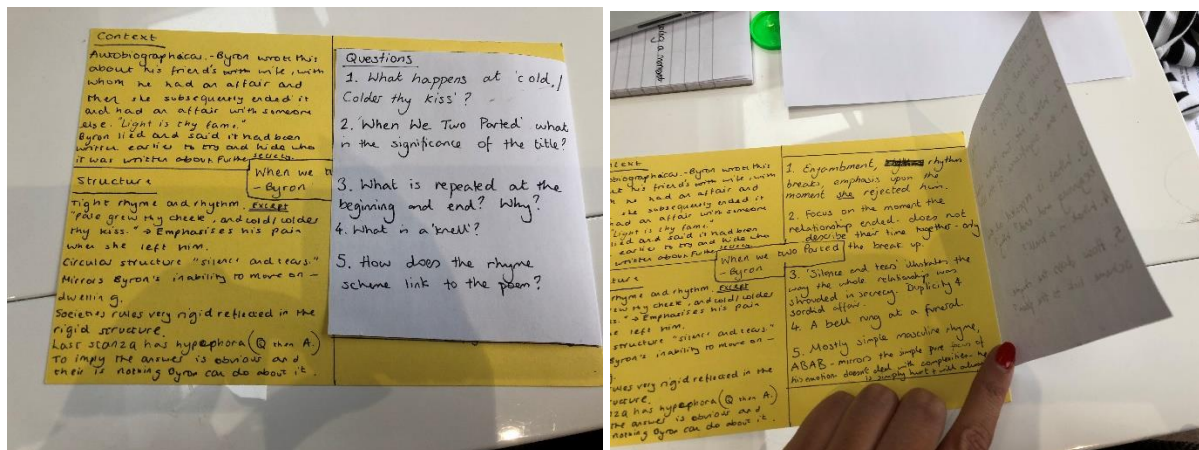 Context
Autobiographical - Byron wrote this
about his friend's wife, with
whom he had an affair and
then she subsequently ended it
and had an affair with someone
else. "Light is thy fame."
Byron lied and said it had been
written earlier to try and hide who
it was written about further
Structure
When we t
- Byron
Tight rhyme and rhythm, EXCEPT
"Pale grew thy cheek, and cold/colder
thy kiss." → Emphasises his pain
when she left him.
Circular structure "silence and tears."
Mirrors Byron's inability to move on -
dwelling.
Societies rules very rigid reflected in the
rigid structure.
Last stanza has hypephora (Q then A.)
To imply the answer is obvious and
their is nothing Byron can do about it.
Questions
1. What happens at 'cold,/
Colder thy kiss'?
2. 'When We Two Parted' what
is the significance of the title?
3. What is repeated at the
beginning and end? Why?
4. What is a 'knell'?
5. How does the rhyme
scheme link to the poem?
text
biographical - Byron wrote this
his friend's wife, with
he had an affair and
she subsequently ended it
ad an affair with someone
"Light is thy fame."
lied and said it had been
written earlier to try and hide who
written about further
When we two parted
- Byron
ture
rhyme and rhythm, EXCEPT
grew thy cheek, and cold/colder
ss." → Emphasises his pain
he left him.
structure "silence and tears."
Byron's inability to move on -
rules very rigid reflected in the
ructure.
nza has hypephora (Q then A.)
the answer is obvious and
nothing Byron can do about it.
1. Enjambment, rhythm
breaks, emphasis upon the
moment she rejected him.
2. Focus on the moment the
relationship ended. does not
describe their time together - only
the break up.
3. 'Silence and tears' illustrates the
way the whole relationship was
shrouded in secrecy. Duplicity &
sordid affair.
4. A bell rung at a funeral.
5. Mostly simple masculine rhyme,
ABAB - mirrors the simple pure focus of
his emotion doesn't deal with complexities. he
is simply hurt & will always